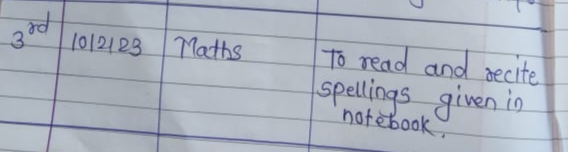 3rd 10|2|23 Maths To read and recite
spellings given in
notebook.